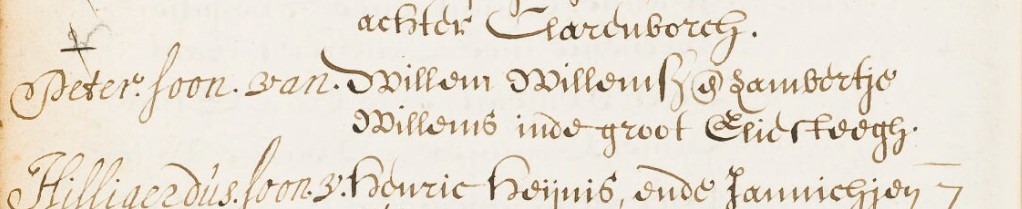 achter Clarenborch.
Peter. soon. van. Willem Willemsz @ Lambertje
Willems inde groot Eliesteegh.
Hilligerdus. soon. v. Henric Heijnis, ende Jannichjen